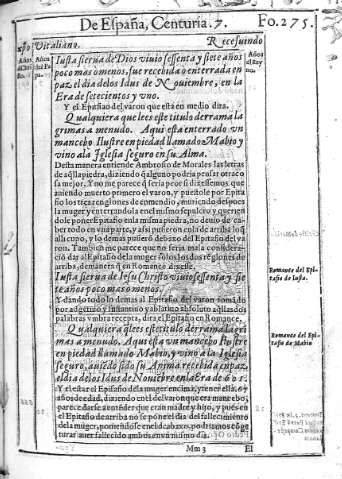 De España, Centuria. 7. Fo. 275.
Vitaliano. Recesuindo
Años del Pa pa.
Años del Rey no.
Iusta sierua de Dios viuio sesenta y siete años
poco mas o menos, fue recebida o enterrada en
paz el dia de los Idus de Nouiembre, en la
Era de setecientos y vno.
Y el Epitafio del varon que està en medio dira.
Qualquiera que lees este titulo derrama la
grimas a menudo. Aqui esta enterrado vn
mancebo Ilustre en piedad llamado Mabio y
vino ala Iglesia seguro en su Alma.
Desta manera entiende Ambrosio de Morales las letras
de aq̃lla piedra, diziendo q̃ alguno podria pensar otra co
sa mejor, Y no me parece q̃ seria peor si dixessemos que
auiendo muerto primero el varon, y puestole por Epita
fio los treze renglones de enmedio, muriendo despues
la muger y enterrandola en el mismo sepulcro y querien
dole poner Epitafio en la misma piedra, no deuio de ca-
ber todo en vna parte, y assi pusieron en lo de arriba lo q̃
alli cupo, y lo demas pusierõ debaxo del Epitafio del va
ron. Tambien me parece que no seria mala considera-
ciõ dar al Epitafio dela muger solo los dos reglones de
arriba, de manera q̃ en Romance dixesse.
Iusta sierua de Iesu Christo viuio sesenta y sie
te años poco mas o menos.
Y dando todo lo demas al Epitafio del varon tomado
por adgetiuo y
palabras vmbra recepta, dira el Epitafio en Romance.
Qualquiera q̃ lees este titulo derrama lagri
mas a menudo. Aqui està vn mancebo Ilustre
en piedad llamado Mabio, y vino a la Iglesia
seguro, auiedo sido su Anima recebida en paz
el dia de los Idus de Nouiẽbre en la Era de 601.
Y el estar el Epitafio dela muger encima, y tener ella
años de edad, diziendo en el del varon que era mancebo,
parece darse a entender que eran madre y hijo, y pues en
el Epitafio de arriba no se pone el dia del fallecimiento
dela muger, poniendose en el de abaxo, podriamos cõge
turar auer fallecido ambos en vn mismo dia.
Mm 3 El
Romance del Epi-
tafio de Iusta.
Romance del Epi-
tafio de Mabio